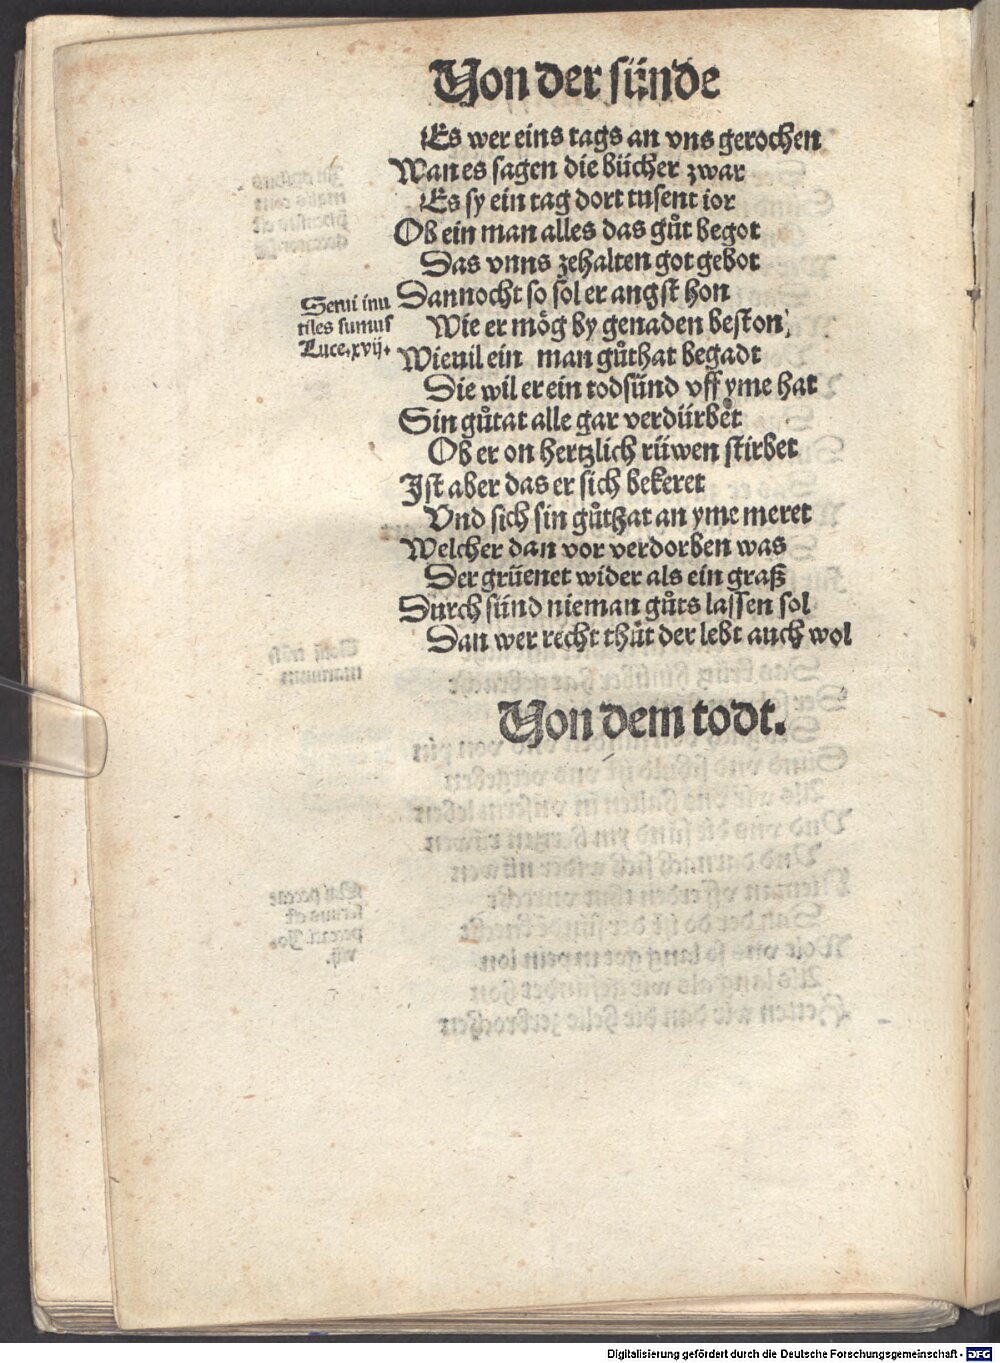 Von der sünde
Es wer eins tags an vns gerochen
Wan es sagen die bücher zwar
Es sy ein tag dort tusent ior
Ob ein man alles das gůt begot
Das vnns zehalten got gebot
Dannocht so sol er angst hon
Wie er mög by genaden beston
Serui inu
tiles sumus
Luce. xvij.
Wieuil ein man gůthat begadt
Die wil er ein todsünd vff yme hat
Sin gůtat alle gar verdürbet
Ob er on hertzlich rüwen stirbet
Ist aber das er sich bekeret
Vnd sich sin gůthat an yme meret
Welcher dan vor verdorben was
Der grüenet wider als ein graß
Durch sünd nieman gůts lassen sol
Dan wer recht thůt der lebt auch wol
Von dem todt.
Digitalisierung gefördert durch die Deutsche Forschungsgemeinschaft - DFG